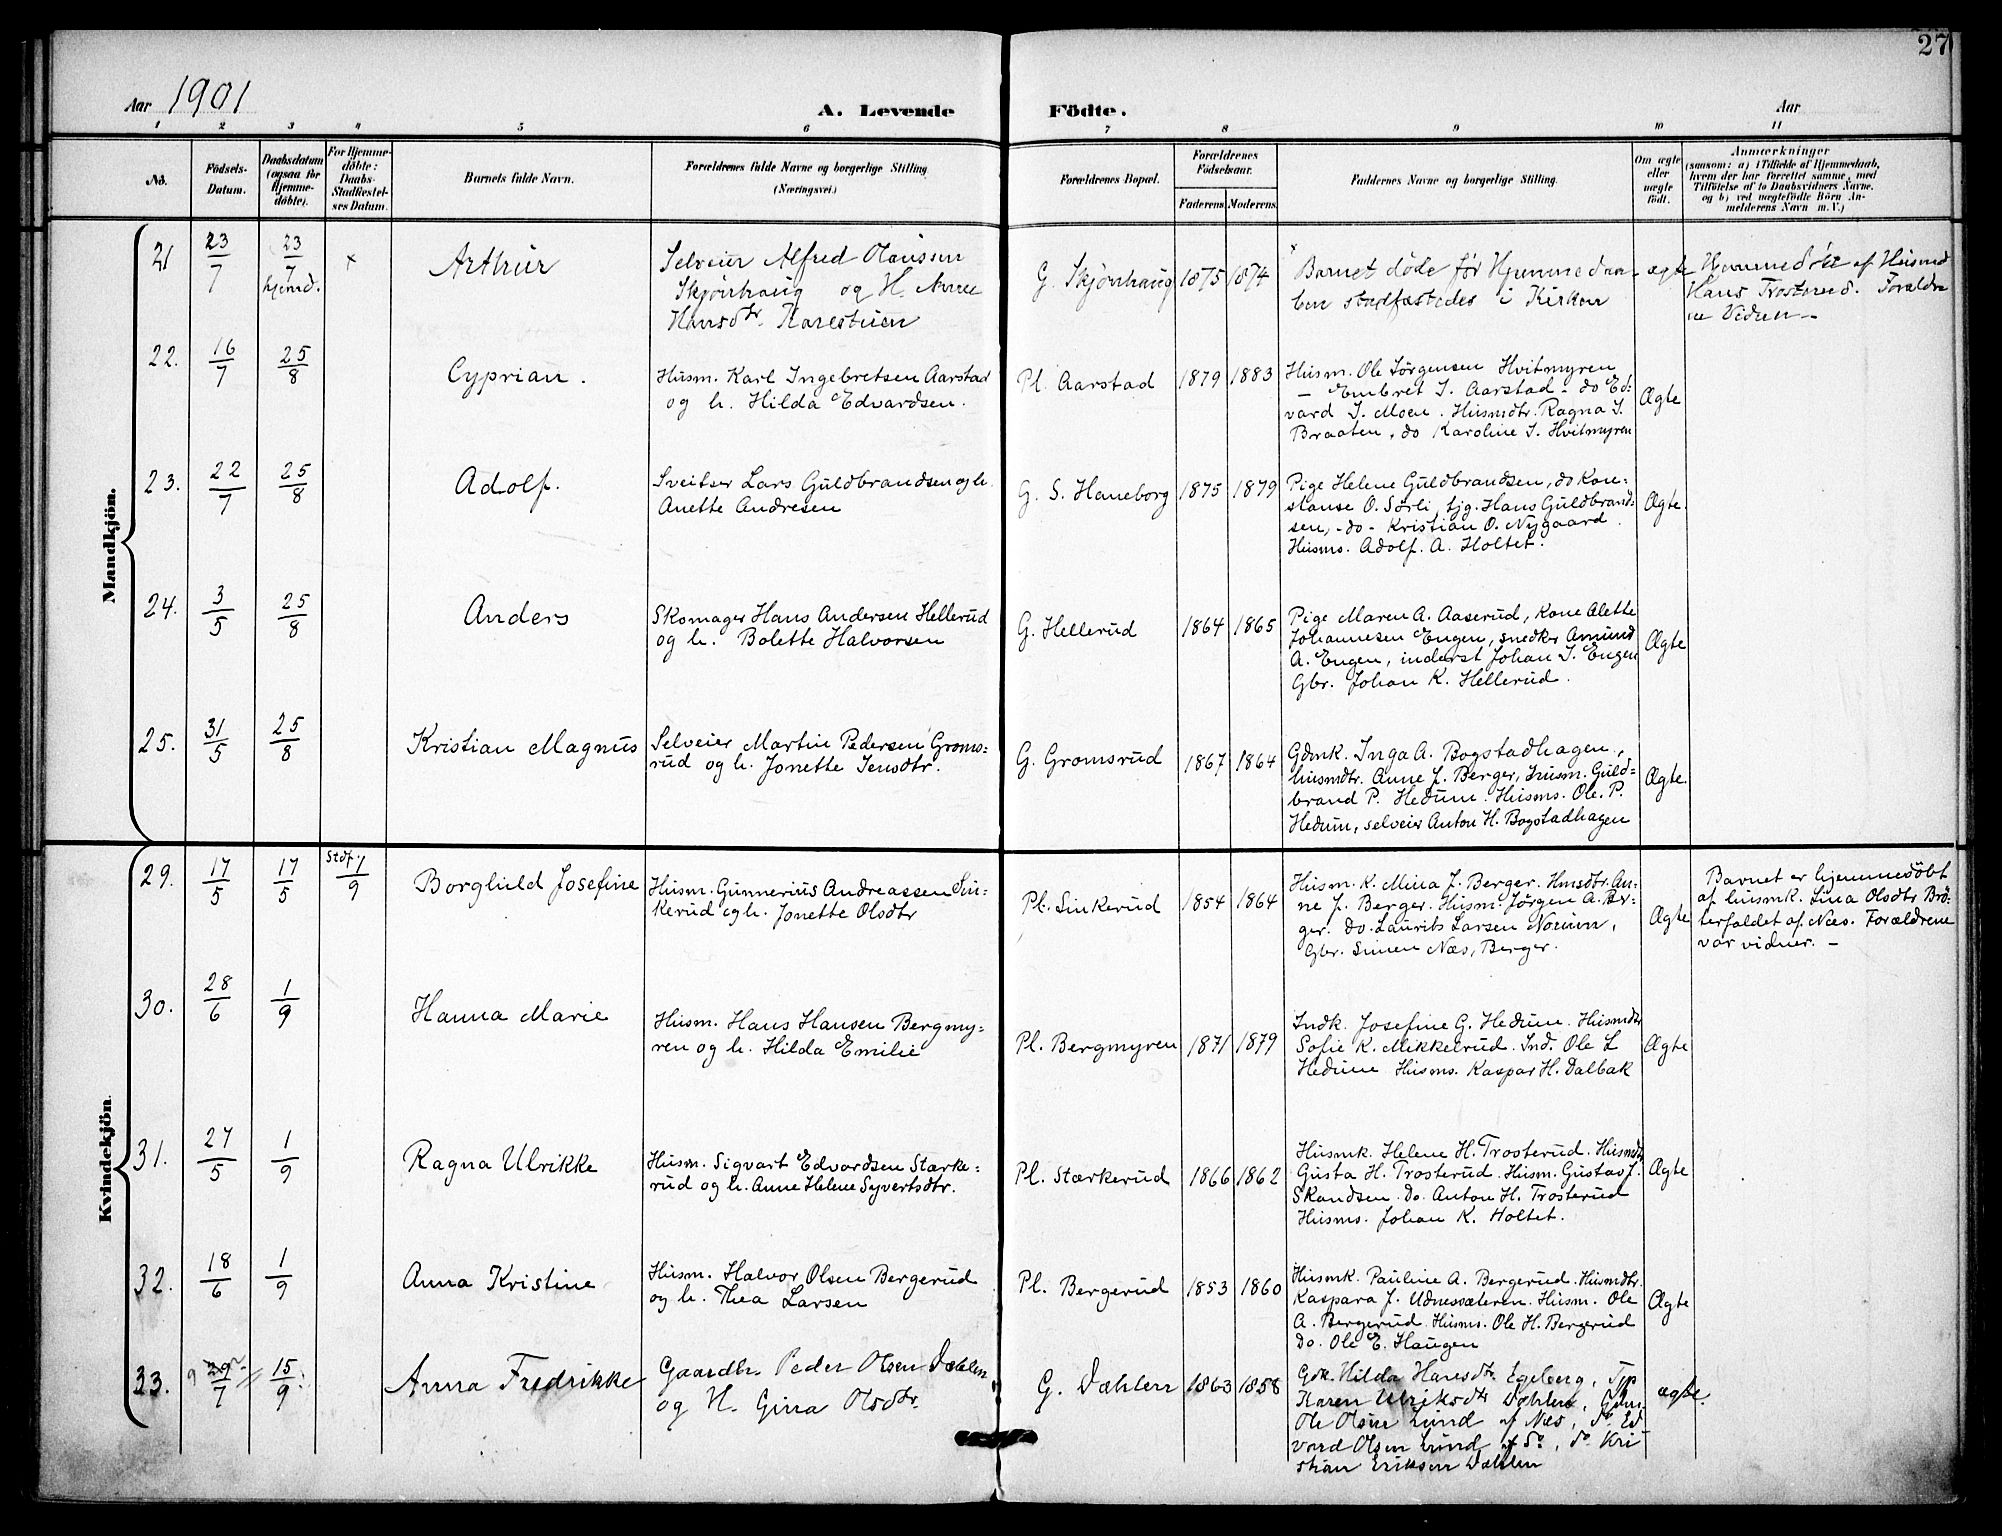 27
Aar 1901
A. Levende Födte.
Aar
1 2 3 4 5 6 7 8 9 10 11
No.
Födsels-Datum.
Daabsdatum (ogsaa for Hjemme-döbte).
For Hjemme-döbte: Daabs-Stadfæstel-ses Datum.
Barnets fulde Navn.
Forældrenes fulde Navne og borgerlige Stilling (Næringsvei.)
Forældrenes Bopæl.
Forældrenes Födselsaar.
Faderens Moderens
Faddernes Navne og borgerlige Stilling.
Om ægte eller uægte födt.
Anmærkninger
(saasom: a) i Tilfælde af Hjemmedaab,
hvem der har forrettet samme, med
Tilföielse af to Daabsvidners Navne,
og b) ved uægtefödte Börn An-
melderens Navn m. V.)
Mandkjön.
21 23/7 23/7 hjemd. x
Arthur
Selveier Alfred Olaussen
Skjønhaug og H.
Hansdtr. Karestuen
G. Skjønhaug 1875 1874
x Barnet døde før Hjemmedaa-
ben stadfæstedes i Kirken
ægte
Hjemmedöbt af Husmd
Hans Trosterud. Forældre
ne Vidner -
22. 16/7 25/8
Cyprian.
Husm. Karl Ingebretsen Aarstad
og h. Hilda Edvardsen.
Pl. Aarstad 1879 1883
Husm. Ole Jørgensen Hvitmyren
- Embret I. Aarstad - do Ed-
vard I. Moen. Husmdtr. Ragna I.
Braaten, do Karoline I. Hvitmyren
Ægte
23. 22/7 25/8
Adolf.
Sveitser Lars Guldbrandsen og h.
Anette Andresen
G. S. Haneborg 1875 1879
Pige Helene Guldbrandsen, do Kon-
stanse O. Sörli, tjg. Hans Guldbrand-
sen, - do - Kristian O. Nygaard.
Husms. Adolf. A. Holtet.
Ægte.
24. 3/5 25/8
Anders
Skomager Hans Andersen Hellerud
og h. Bolette Halvorsen
G. Hellerud 1864 1865
Pige Maren A. Aaserud, Kone Alette
Johannesen Engen, snedker Amund
A. Engen, inderst Johan I. Engen
Gbr. Johan K. Hellerud.
Ægte
25. 31/5 25/8
Kristian Magnus
Selveier Martin Pedersen Groms-
rud og h. Jonette Jensdtr.
G. Gromsrud 1867 1864
Gdmk. Inga A. Bogstadhagen,
husmdtr. Anne J. Berger, husm. Guld-
brand P. Hedum. Husms. Ole. P.
Hedum, selveier Anton H. Bogstadhagen
Ægte.
Kvindekjön.
29. 17/5 17/5 Stdf. 1/9
Borghild Josefine
Husm. Gunnerius Andreassen Sin-
kerud og h. Jonette Olsdtr
Pl. Sinkerud 1854 1864
Husm. K. Mina J. Berger. Hmsdtr. An-
ne J. Berger. Husm. Jörgen A. Ber-
ger. do. Laurits Larsen
Gbr. Simen Næs, Berger.
Ægte
Barnet er hjemmedöbt
af husmk. Lina Olsdtr Brö-
terfaldet af Næs. Forældrene
var vidner. -
30. 28/6 1/9
Hanna Marie
Husm. Hans Hansen Bergmy-
ren og h. Hilda Emilie
Pl. Bergmyren 1871 1879
Indk. Josefine G. Hedum. Husmdtr
Sofie K. Mikkelrud. Ind. Ole L
Hedum Husms. Kaspar H. Dalbak
Ægte
31. 27/5 1/9
Ragna Ulrikke
Husm. Sigvart Edvardsen Stærke-
rud og h. Anne Helene Syvertsdtr.
Pl. Stærkerud 1866 1862
Husmk. Helene H. Trosterud. Husmdtr
Gusta H. Trosterud. Husm. Gustav J.
Skandsen. Do. Anton H. Trosterud
Husms. Johan K. Holtet.
Ægte
32. 18/6 1/9
Anna Kristine
Husm. Halvor Olsen Bergerud
og h. Thea Larsen
Pl. Bergerud 1853 1860
Husmk. Pauline A. Bergerud. Husmdtr.
Kaspara J. Udnessæteren. Husm. Ole
A. Bergerud. Husms. Ole H. Bergerud
Do. Ole E. Haugen
Ægte
33. 29/7 15/9
Anna Fredrikke
Gaardbr. Peder Olsen Dæhlen
og H. Gina Olsdtr.
G. Dæhlen 1863 1858
Gdk. Hilda Hansdtr. Egeberg, Tjp
Karen Ulriksdtr Dæhlen,
Ole Olsen Lund af Næs, do. Ed
vard Olsen Lund af do., do. Kri
stian Eriksen Dæhlen
ægte.